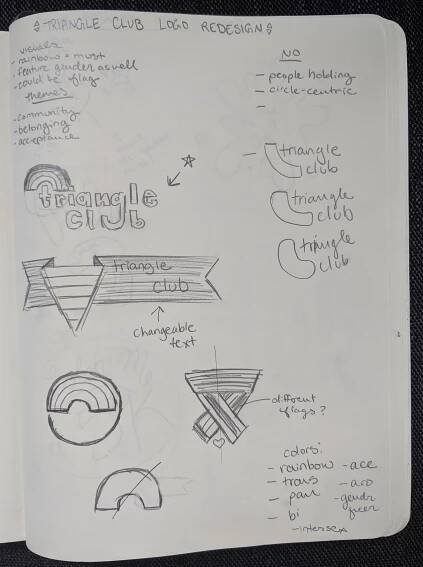 TRIANGLE CLUB LOGO REDESIGN
visuals
- rainbow = must
- feature gender as well
- could be flag
themes
- community
- belonging
- acceptance
NO
- people holding
- circle-centric
-
- triangle
club
triangle
club
triangle
club
triangle
club
triangle
club
changeable
text
different
flags?
colors:
- rainbow
- trans
- pan
- bi
- ace
- aro
- gendr
queer
- intersex